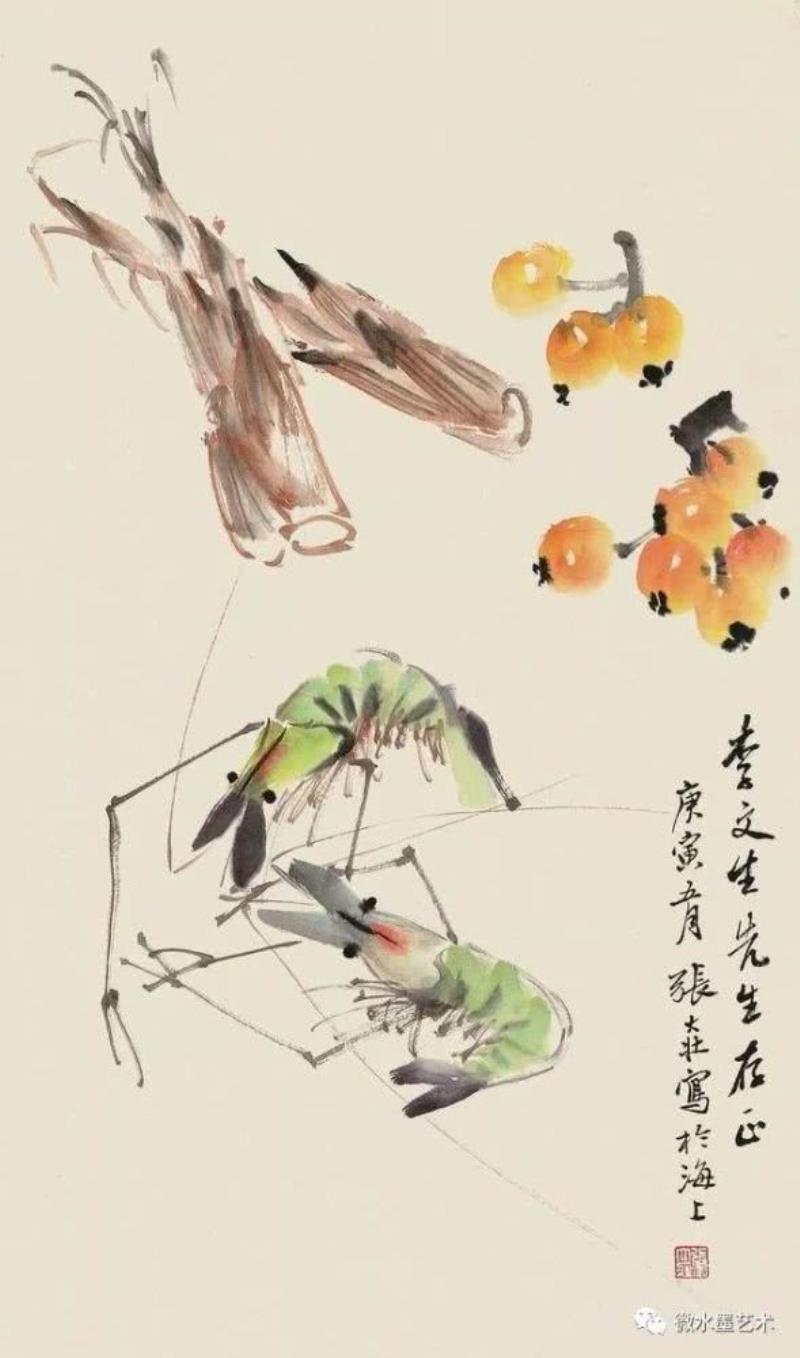 李文生先生存正
庚寅五月 張大壯寫於海上
微水墨艺术